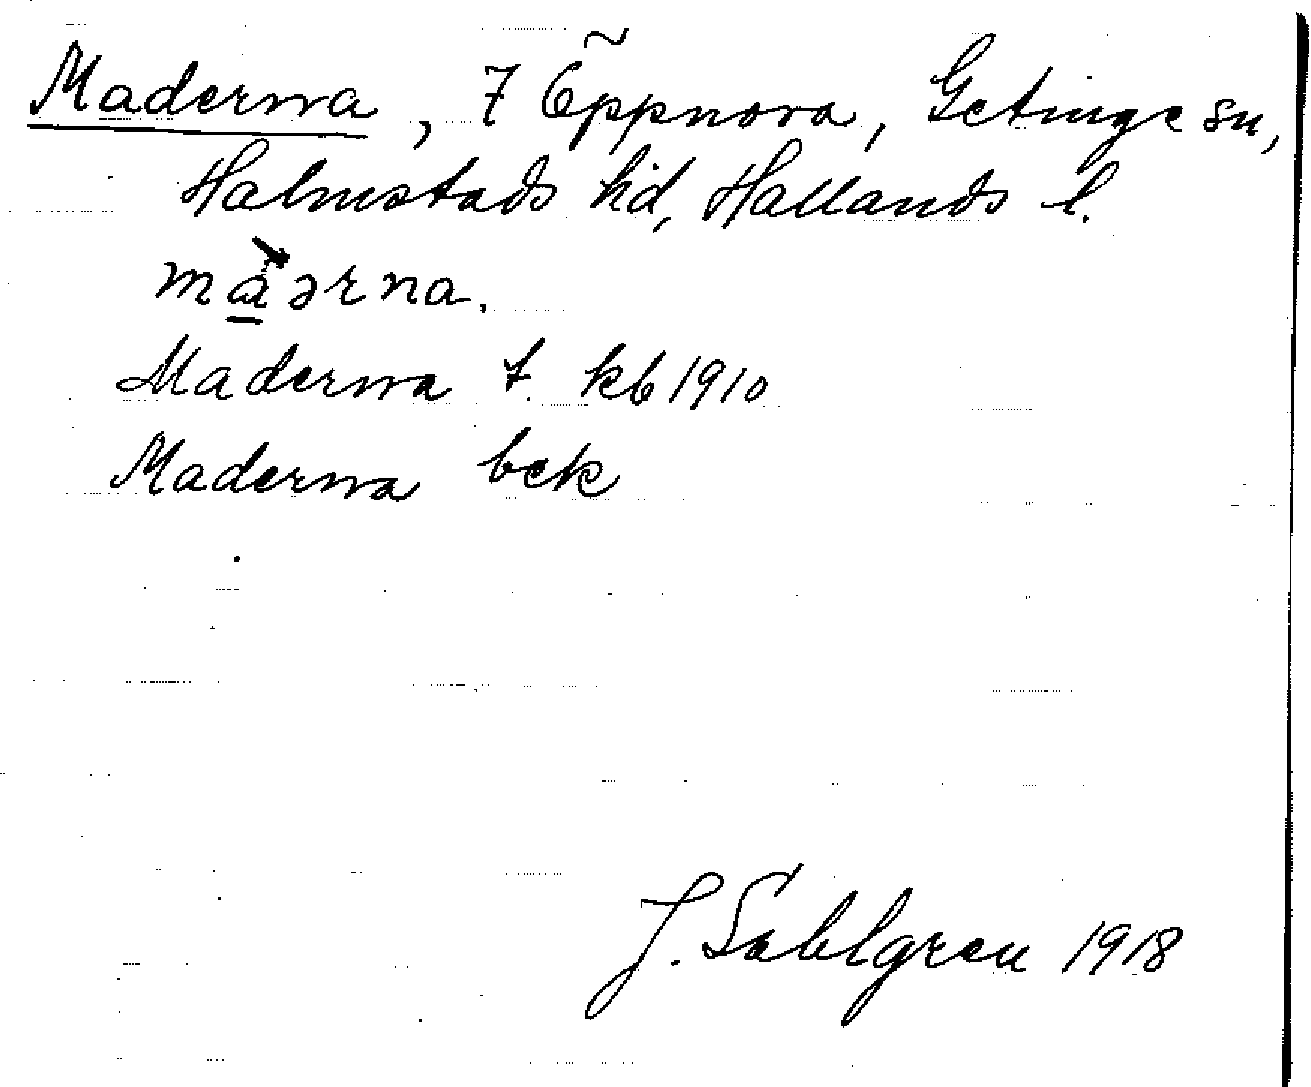 Maderna, 7 Öppnora, Getinge sn,
Halmstads hd, Hallands l.
màərna.
Maderna t. kb 1910
Maderna bek
J. Sahlgren 1918